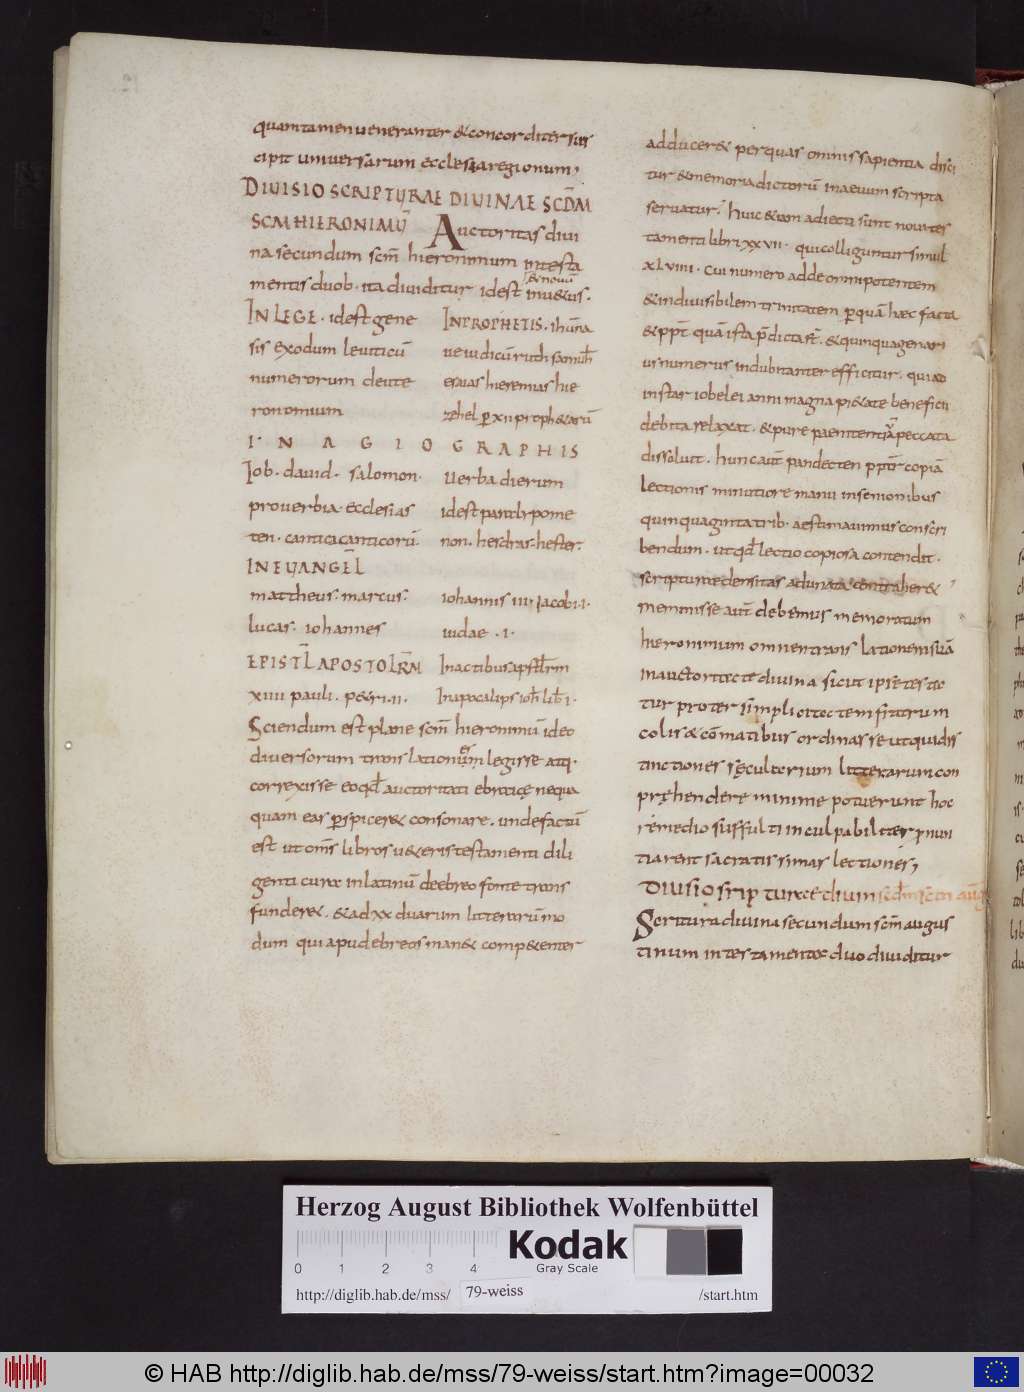 quam tamen veneranter & concorditer sus
cipit universarum ecclesia regionum,
DIVISIO SCRIPTURAE DIVINAE SCDM
SCM HIERONIMU Auctoritas divi
na secundum scm hieronimum in testa
& novu
mentis duob· ita dividitur idest in u&us·
IN LEGE· idest gene
sis exodum leviticu
numerorum deute
ronomium
IN PROPHETIS· ihuna
ve iudicu ruth samuh
esaias hieremias hie
zehel p xii proph&aru
I· N A G I O G R A P H I S
Iob· david· salomon·
proverbia· ecclesias
ten· cantica canticoru·
Verba dierum
idest paralypome
non· hesdras· hester·
IN EVANGEL
mattheus· marcus·
lucas· iohannes
iohannis iii· Jacobi·i·
iudae ·i·
EPISTL APOSTOLRM
xiiii pauli· p&ri·ii·
In actibus apstlrm
In apocalips ioh lib i·
Sciendum est plane scm hieronimu ideo
diversorum translationum legisse atq·
correxisse eo qd auctoritati ebraice nequa
quam eas pspicer& consonare· unde factu
est ut oms libros u&eris testamenti dili
genti cura in latinu de ebreo fonte trans
funder&· & ad xx duarum litteraru mo
dum qui apud ebreos man& comp&enter
adducer& per quas omnis sapientia disci
tur & memoria dictoru in aevum scripta
servatur· huic &iam adiecti sunt novi tes
tamenti libri xxvii· qui colliguntur simul
xlviiii· cui numero adde omnipotentem
& indivisibilem trinitatem p quam haec facta
& ppt quam ista pdicta st· & quinquagenari
us numerus indubitanter efficitur· qui ad
instar iobelei anni magna pi&ate beneficii
debita relaxat· & pure paenitentia peccata
dissolvit· hunc aut pandecten pptr copia
lectionis minutiore manu in senionibus
quinquaginta trib· aestimavimus conscri
bendum· ut qd lectio copiosa contendit·
scripturae densitas adunata contraher&
meminisse aut debemus memoratum
hieronimum omnem translationem sua
in auctoritate divina sicut ipse testa
tur propter simplicitatem fratrum
colis & comatibus ordinasse ut qui dis
tinctiones secularium litterarum con
prehendere minime potuerunt hoc
remedio suffulti inculpabiliter pnun
tiarent sacratissimas lectiones,
Divisio srip turae divin scdm scm aug
Scritura divina secundum scm augus
tinum in testamenta duo dividitur
Herzog August Bibliothek Wolfenbüttel
0 1 2 3 4
Kodak
Gray Scale
http://diglib.hab.de/mss/ 79-weiss /start.htm
© HAB http://diglib.hab.de/mss/79-weiss/start.htm?image=00032